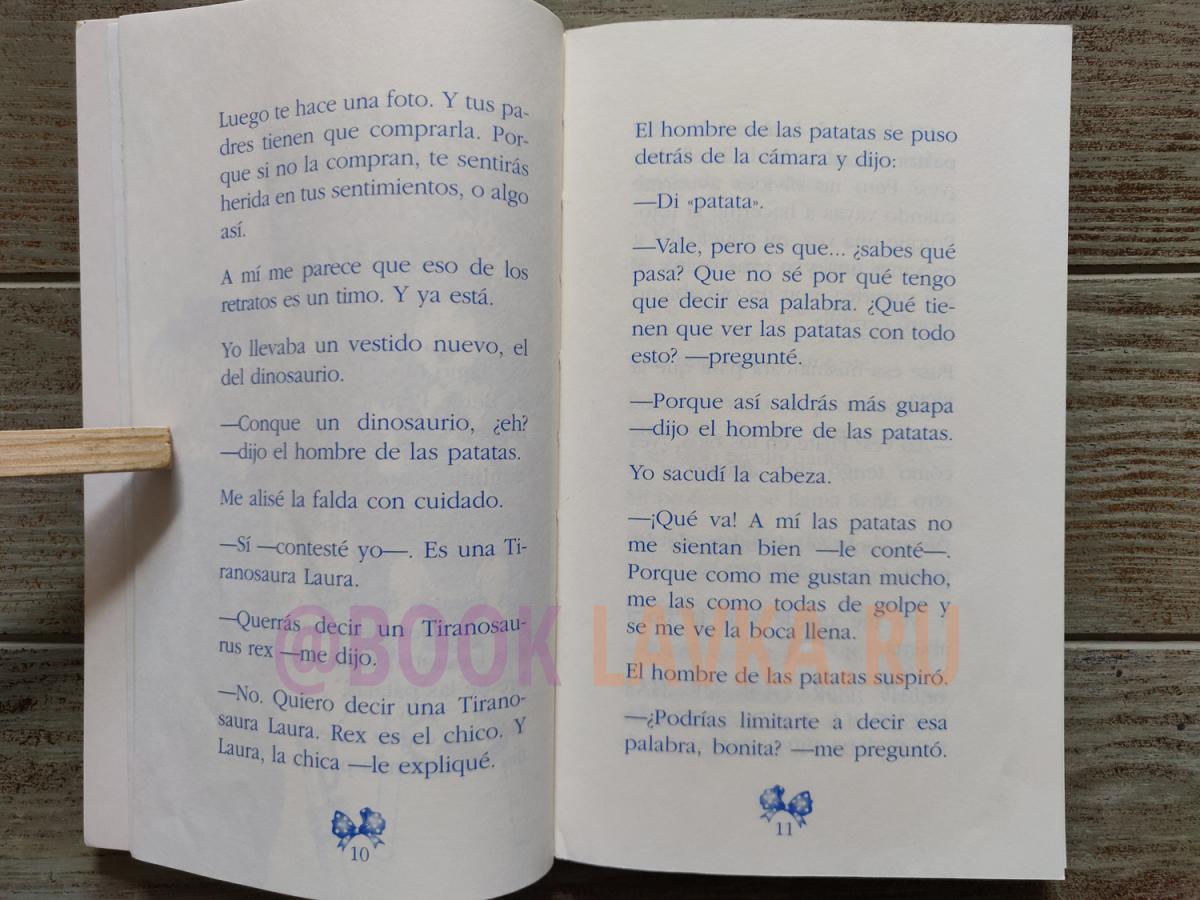 Luego te hace una foto. Y tus pa-
dres tienen que comprarla. Por-
que si no la compran, te sentirás
herida en tus sentimientos, o algo
así.
A mí me parece que eso de los
retratos es un timo. Y ya está.
Yo llevaba un vestido nuevo, el
del dinosaurio.
—Conque un dinosaurio, ¿eh?
—dijo el hombre de las patatas.
Me alisé la falda con cuidado.
—Sí —contesté yo—. Es una Ti-
ranosaura Laura.
—Querrás decir un Tiranosau-
rus rex —me dijo.
—No. Quiero decir una Tirano-
saura Laura. Rex es el chico. Y
Laura, la chica —le expliqué.
10
El hombre de las patatas se puso
detrás de la cámara y dijo:
—Di «patata».
—Vale, pero es que... ¿sabes qué
pasa? Que no sé por qué tengo
que decir esa palabra. ¿Qué tie-
nen que ver las patatas con todo
esto? —pregunté.
—Porque así saldrás más guapa
—dijo el hombre de las patatas.
Yo sacudí la cabeza.
—¡Qué va! A mí las patatas no
me sientan bien —le conté—.
Porque como me gustan mucho,
me las como todas de golpe y
se me ve la boca llena.
El hombre de las patatas suspiró.
—¿Podrías limitarte a decir esa
palabra, bonita? —me preguntó.
11
@BOOK LAVKA.RU